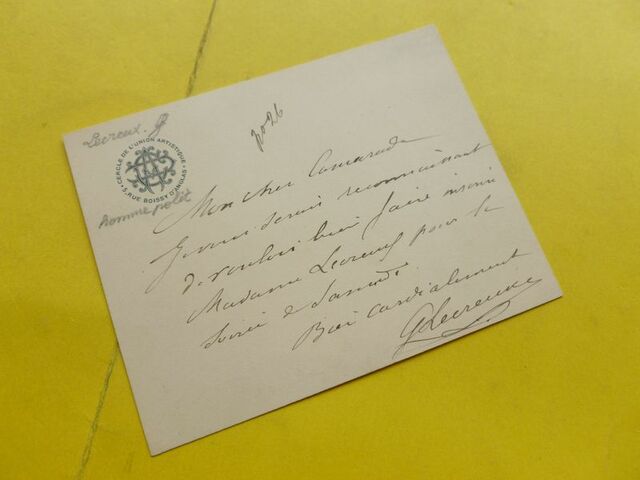 Lecreux. G
2026
CERCLE DE L'UNION ARTISTIQUE
5, RUE BOISSY D'ANGLAS
homme polit
Mon cher Camarade
Je vous serais reconnaissant
de vouloir bien faire inscrire
Madame Lecreux pour la
soirée de Samedi
Bien cordialement
GLecreux